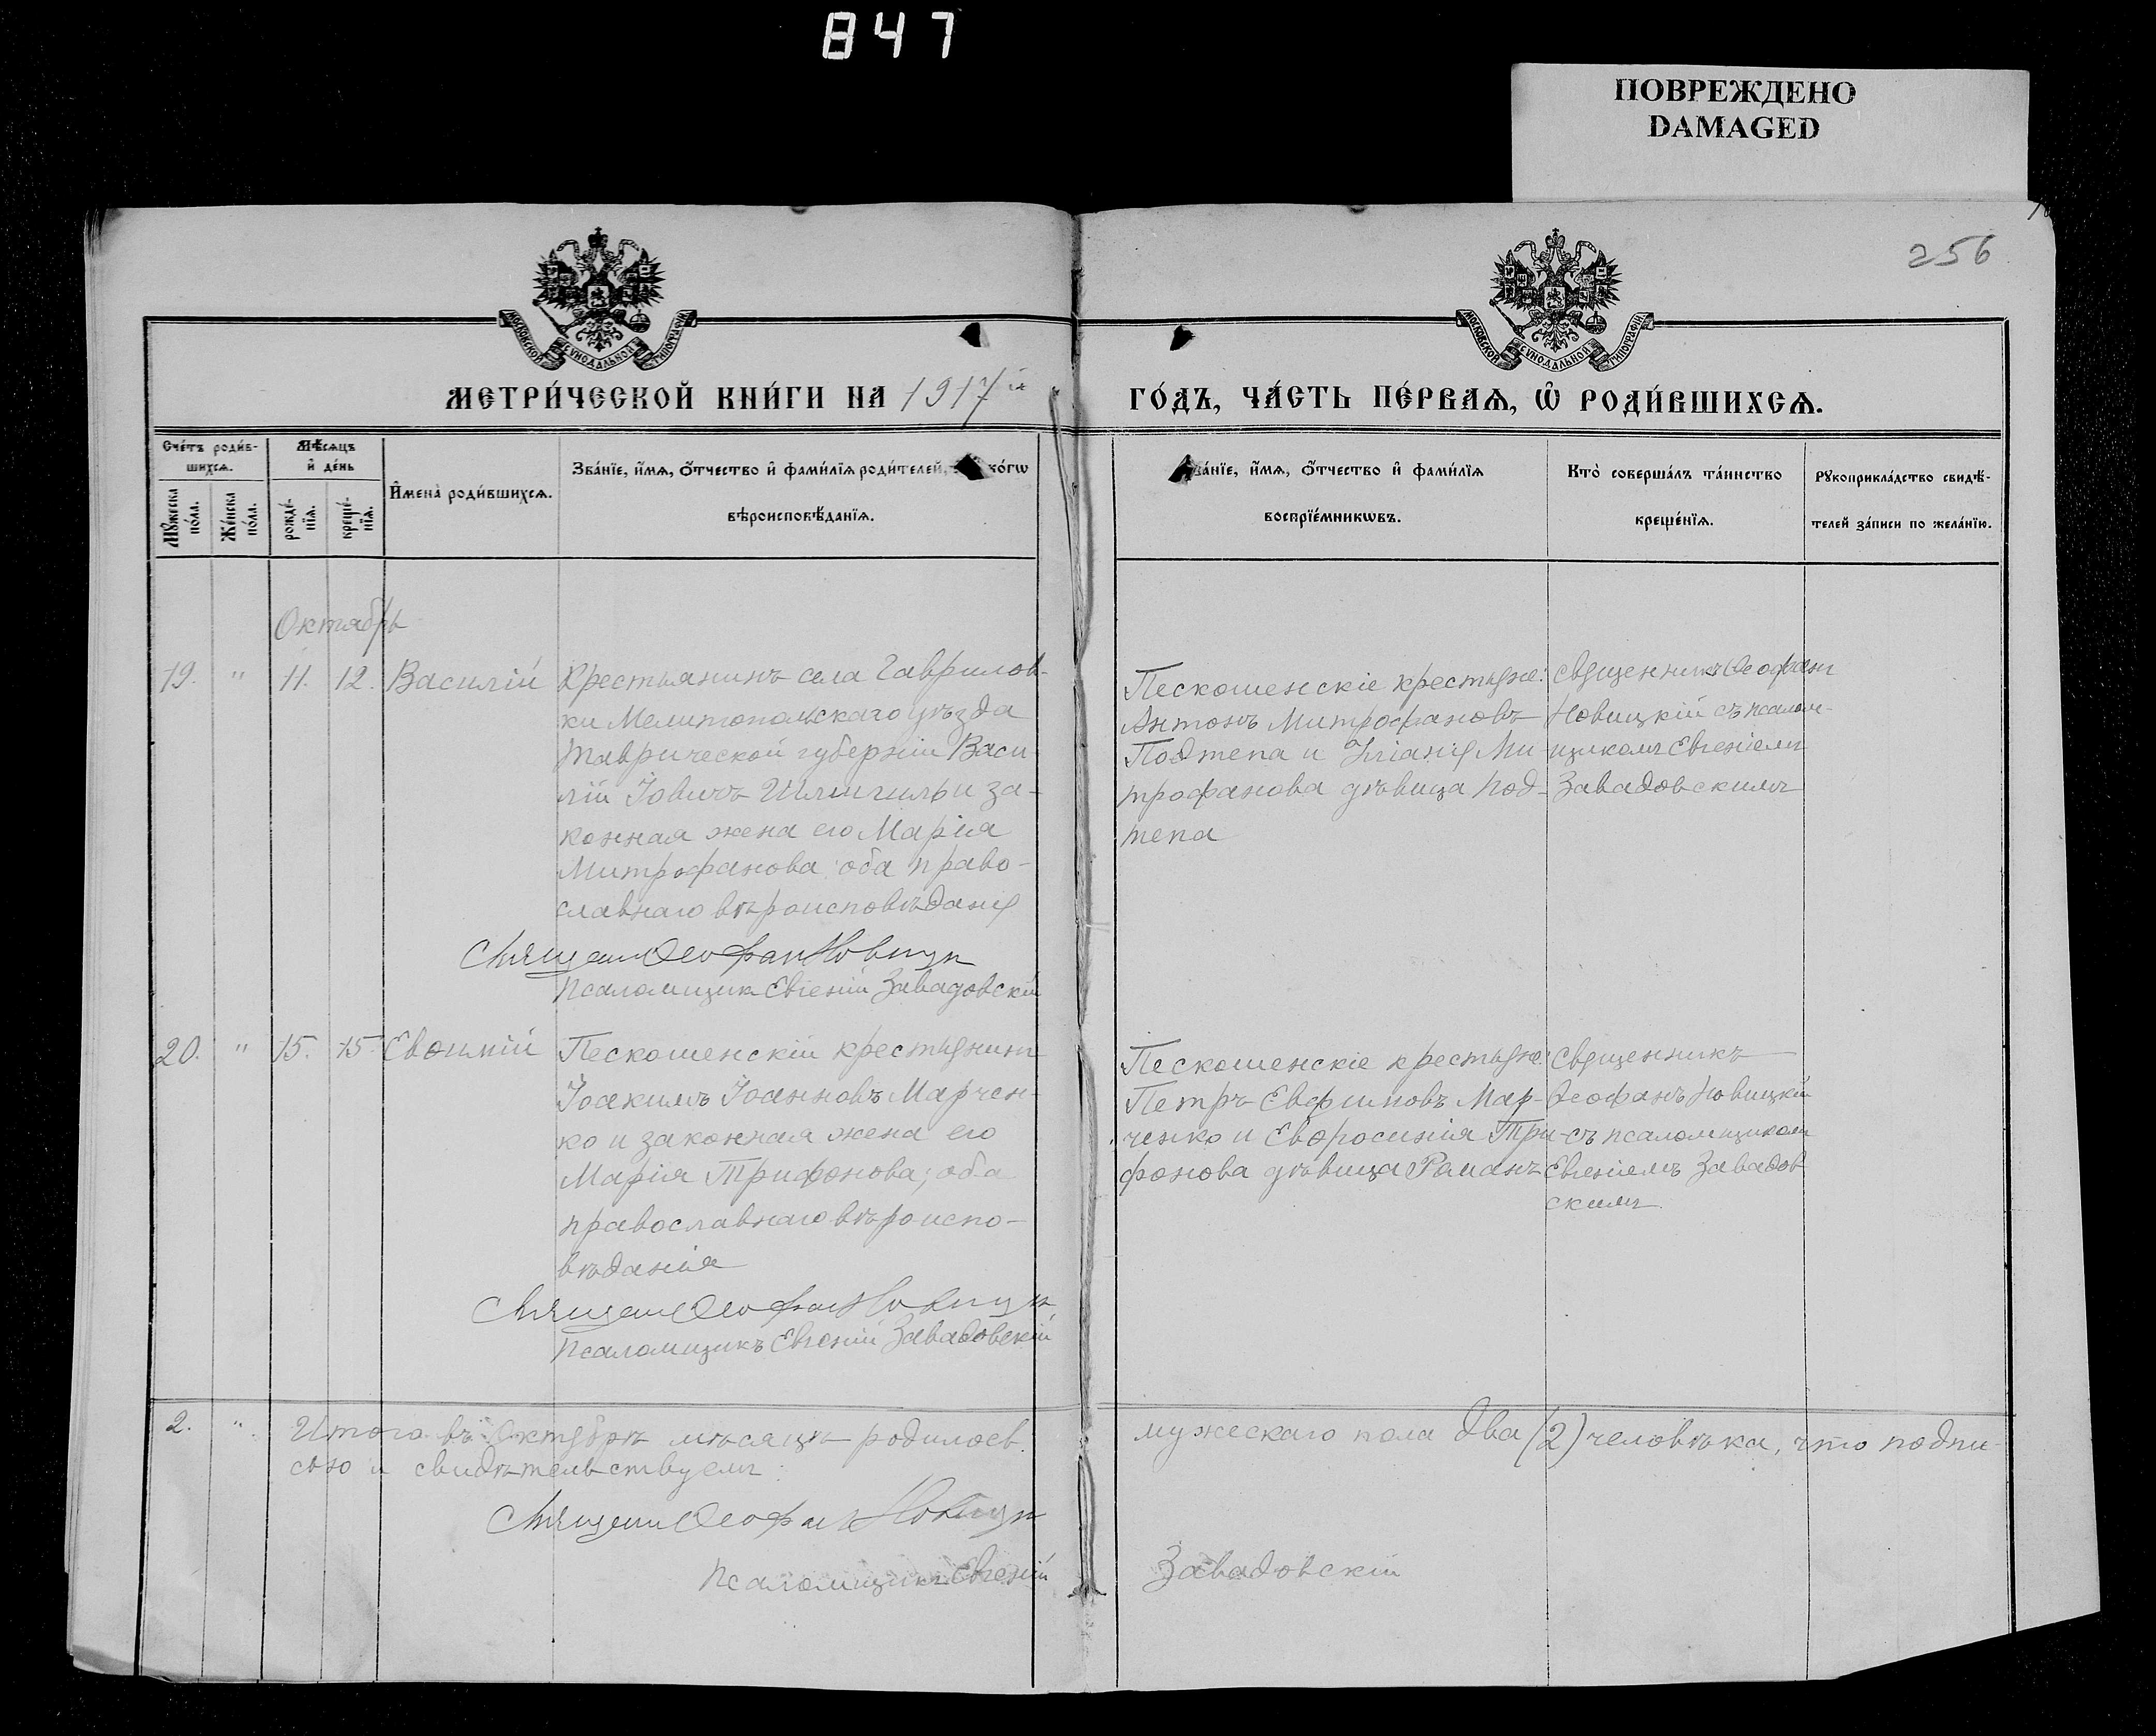 847
ПОВРЕЖДЕНО
DAMAGED
256
МОСКОВСКОЙ СѴНОДАЛЬНОЙ ТИПОГРАФІИ
МОСКОВСКОЙ СѴНОДАЛЬНОЙ ТИПОГРАФІИ
МЕТРИ́ЧЕСКОЙ КНИ́ГИ НА 1917й ГО́ДЪ, ЧА́СТЬ ПЕ́РВАѦ, Ѡ҆ РОДИ́ВШИХСѦ.
Сче́тъ роди́в-
шихсѧ.
Мѣ́сѧцъ
и҆ де́нь
Мꙋ́жеска
по́ла.
Же́нска
по́ла.
рожде́-
нїѧ.
креще́-
нїѧ.
И҆мена̀ роди́вшихсѧ.
Зва́нїе, и҆́мѧ, ѻ҆́тчество и҆ фами́лїѧ роди́телей, ко́гѡ
вѣроисповѣ́данїѧ.
ва́нїе, и҆́мѧ, ѻ҆́тчество и҆ фами́лїѧ
воспрїе́мникѡвъ.
Кто̀ соверша́лъ та́инство
креще́нїѧ.
Рꙋкоприкла́дство свидѣ́-
телей за́писи по жела́нїю.
Октябрь
19. " 11. 12. Василій
Крестьянинъ села Гаврилов-
ки Мелитопольскаго уѣзда
Таврической губерніи Васи-
лій Іовичъ и за-
конная жена его Марія
Митрофанова; оба право-
славнаго вѣроисповѣданія
Священ Ѳеофан Новицк
Псаломщик Евгеній Завадовскій
Пескошенскіе крестьяне:
Антонъ Митрофановъ
Подтепа и Ми-
трофанова дѣвица Под-
тепа
священникъ Ѳеофанъ
Новицкій съ псалом-
щикомъ Евгеніемъ
Завадовскимъ
20. " 15. 15. Евѳимій
Пескошенскій крестьянинъ
Іоакимъ Іоанновъ Марчен-
ко и законная жена его
Марія Трифонова; оба
православнаго вѣроиспо-
вѣданія
Священ Ѳеофан Новицк
Псаломщикъ Евгеній Завадовскій
Пескошенскіе крестьяне:
Петръ Евфимовъ Мар-
ченко и Евфросинія Три-
фонова дѣвица
священникъ
Ѳеофанъ Новицкій
съ псаломщикомъ
Евгеніемъ Завадов
скимъ
2. " Итого въ Октябрѣ мѣсяцѣ родилось мужескаго пола два (2) человѣка, что подпи-
сью и свидѣтельствуемъ:
Священ Ѳеофан Новицк
Псаломщикъ Евгеній Завадовскій